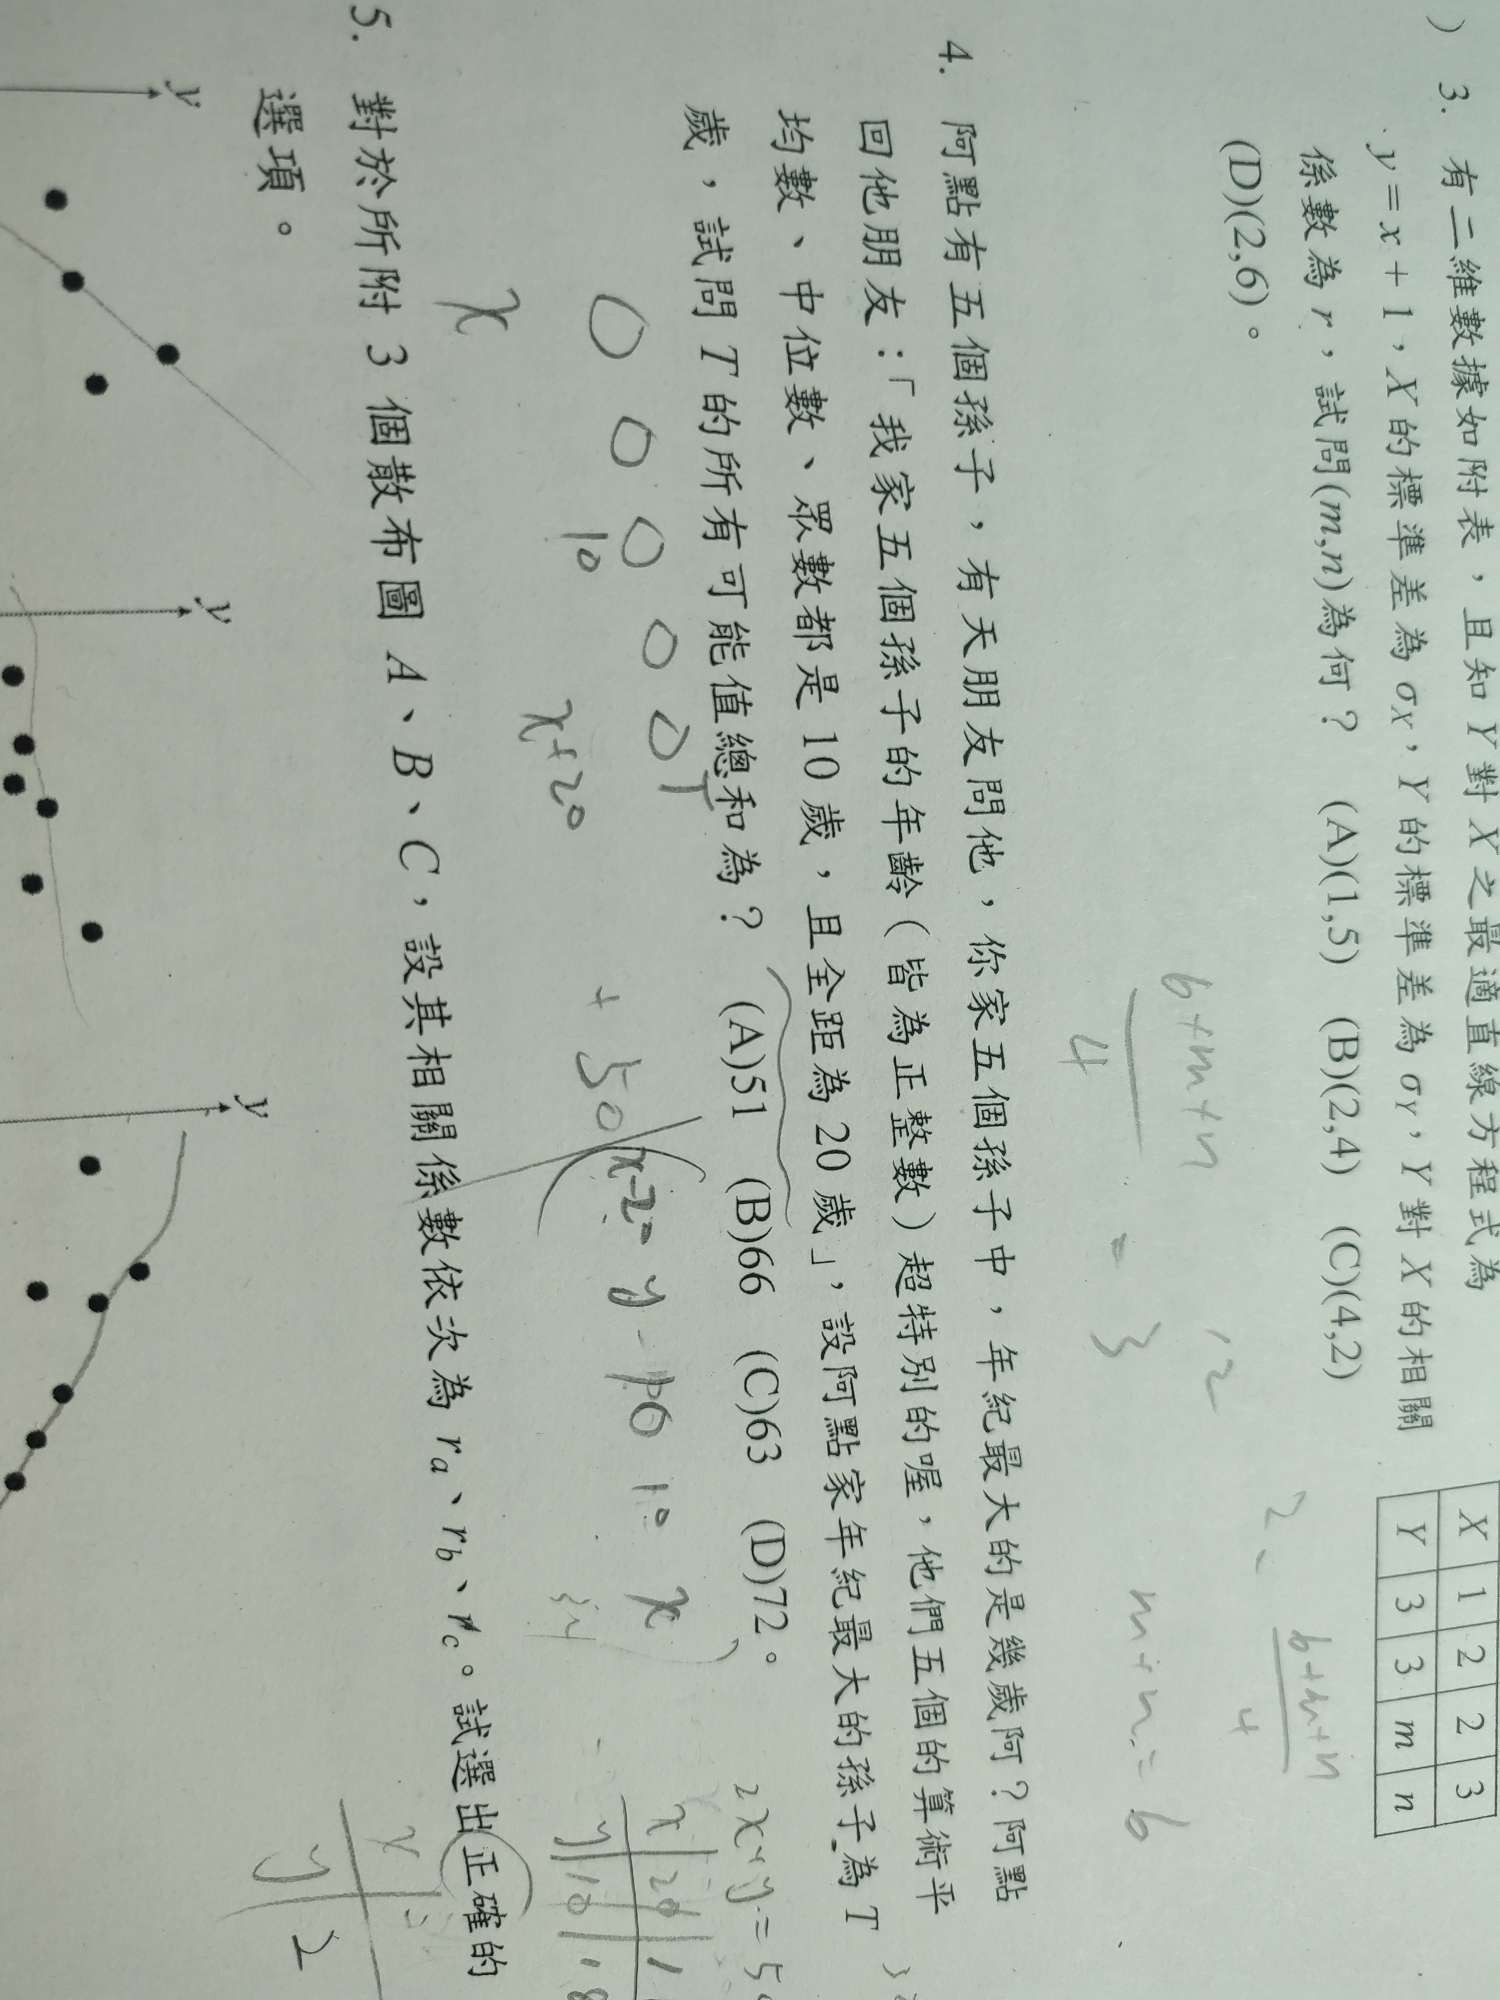 ) 3. 有二維數據如附表，且知 Y 對 X 之最適直線方程式為
y = x + 1，X 的標準差為 σX，Y 的標準差為 σY，Y 對 X 的相關
係數為 r，試問(m,n)為何？ (A)(1,5) (B)(2,4) (C)(4,2)
(D)(2,6)。
X 1 2 2 3
Y 3 3 m n
6+m+n
4
= 3
12
m+n=6
2、
6+m+n
4
4. 阿點有五個孫子，有天朋友問他，你家五個孫子中，年紀最大的是幾歲阿？阿點
回他朋友：「我家五個孫子的年齡（皆為正整數）超特別的喔，他們五個的算術平
均數、中位數、眾數都是 10 歲，且全距為 20 歲」，設阿點家年紀最大的孫子為 T
歲，試問 T 的所有可能值總和為？ (A)51 (B)66 (C)63 (D)72。
T
10
x
x+20
+50
x-20 y 10 10 x
2x+y=50
x 20
y 10 18
5. 對於所附 3 個散布圖 A、B、C，設其相關係數依次為 ra、rb、rc。試選出正確的
選項。
x
y 2
y
y
y